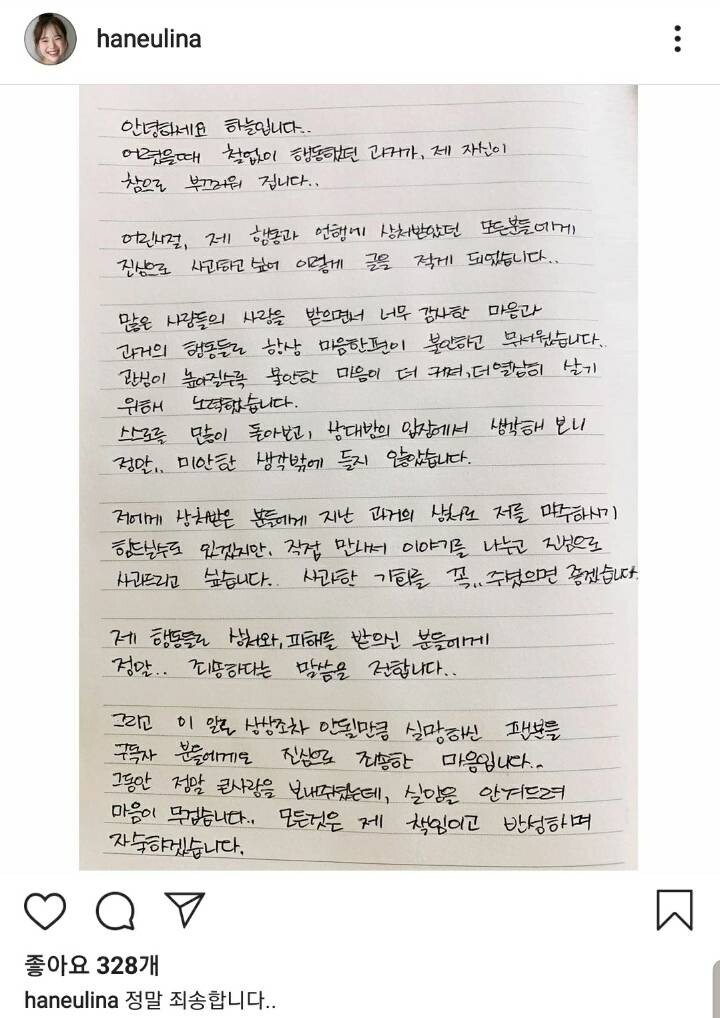 haneulina
안녕하세요 하늘입니다..
어렸을때 철없이 행동했던 과거가, 제 자신이
참으로 부끄러워 집니다..
어린시절, 제 행동과 언행에 상처받았던 모든분들에게
진심으로 사과하고 싶어 이렇게 글을 적게 되었습니다..
많은 사람들의 사랑을 받으면서 너무 감사한 마음과
과거의 행동들로 항상 마음한편이 불안하고 무서웠습니다.
관심이 높아질수록 불안한 마음이 더 커져, 더열심히 살기
위해 노력했습니다.
스스로를 많이 돌아보고, 상대방의 입장에서 생각해 보니
정말.. 미안한 생각밖에 들지 않았습니다.
저에게 상처받은 분들에게 지난 과거의 상처로 저를 마주하시기
힘드실수도 있겠지만, 직접 만나서 이야기를 나누고 진심으로
사과드리고 싶습니다.. 사과할 기회를 꼭.. 주셨으면 좋겠습니다.
제 행동들로 상처와, 피해를 받으신 분들에게
정말.. 죄송하다는 말씀을 전합니다..
그리고 이 일로 상상조차 안될만큼 실망하신 팬분들
구독자 분들에게도 진심으로 죄송한 마음입니다..
그동안 정말 큰사랑을 보내주셨는데, 실망을 안겨드려
마음이 무겁습니다.. 모든것은 제 책임이고 반성하며
자숙하겠습니다.
좋아요 328개
haneulina 정말 죄송합니다..